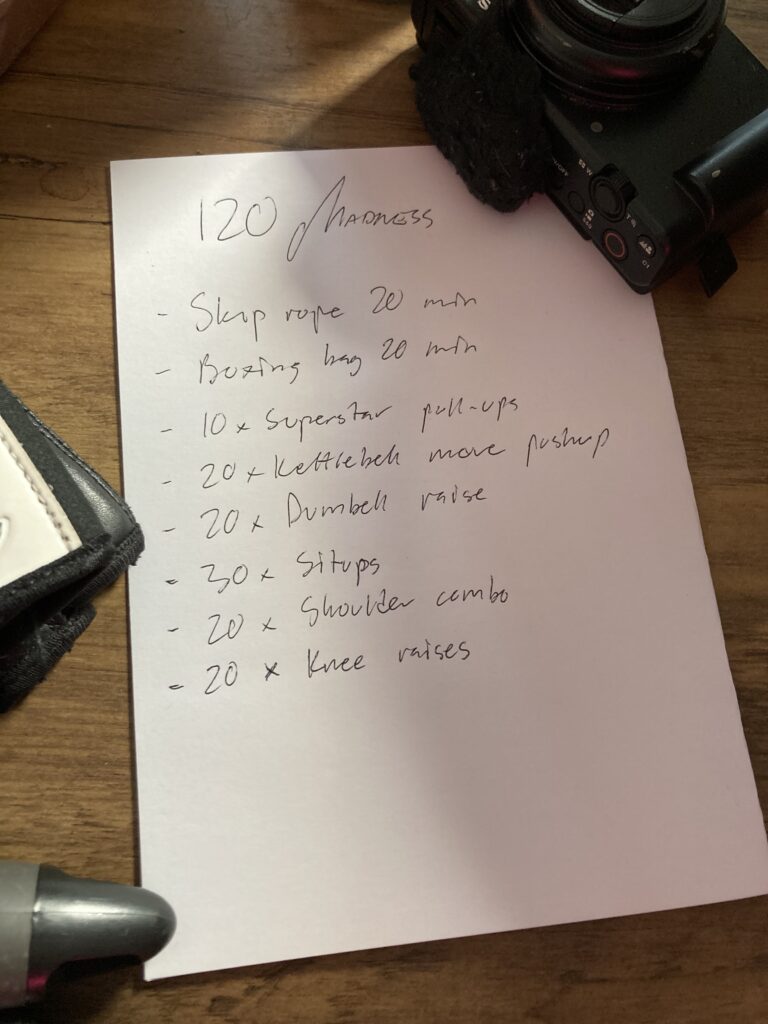 120 MADNESS
- Skip rope 20 min
- Boxing bag 20 min
- 10 x Superstar pull-ups
- 20 x Kettlebell move pushup
- 20 x Dumbell raise
- 30 x Situps
- 20 x Shoulder combo
- 20 x Knee raises